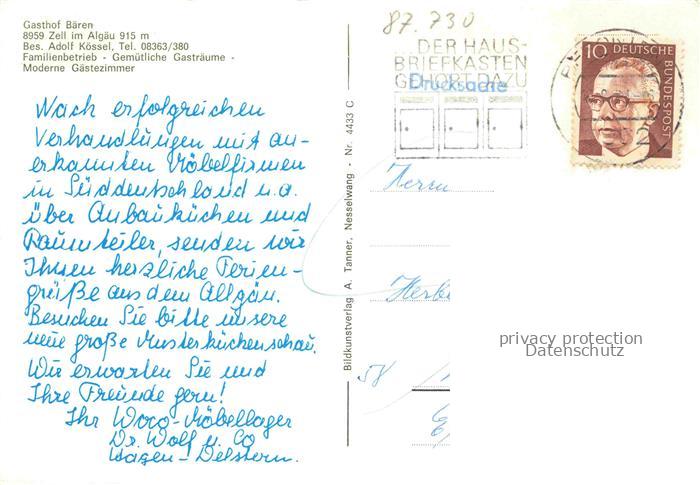 Gasthof Bären
8959 Zell im Algäu 915 m
Bes. Adolf Kössel, Tel. 08363/380
Familienbetrieb - Gemütliche Gasträume -
Moderne Gästezimmer
Nach erfolgreichen
Verhandlungen mit an-
erkannten Möbelfirmen
in Süddeutschland u.a.
über Anbauküchen und
Raumteiler, senden wir
Ihnen herzliche Ferien-
grüße aus dem Allgäu.
Besuchen Sie bitte unsere
neue große Musterküchenschau.
Wir erwarten Sie und
Ihre Freunde gern!
Ihr Woco-Möbellager
Dr. Wolf u. Co
Hagen-Delstern.
Bildkunstverlag A. Tanner, Nesselwang - Nr. 4433 C
87.730
DER HAUS-
BRIEFKASTEN
GEHÖRT DAZU
Drucksache
10 DEUTSCHE
BUNDESPOST
Herrn
Herbe
58
privacy protection
Datenschutz